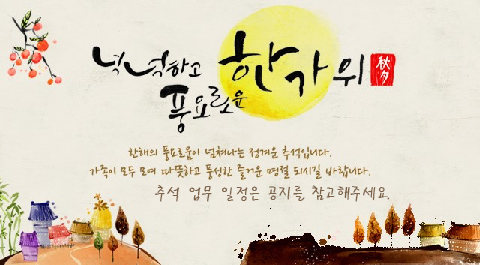 넉넉하고
풍요로운
한가위
秋夕
한해의 풍요로움이 넘쳐나는 정겨운 추석입니다.
가족이 모두 모여 따뜻하고 풍성한 즐거운 명절 되시길 바랍니다.
추석 업무 일정은 공지를 참고해주세요.